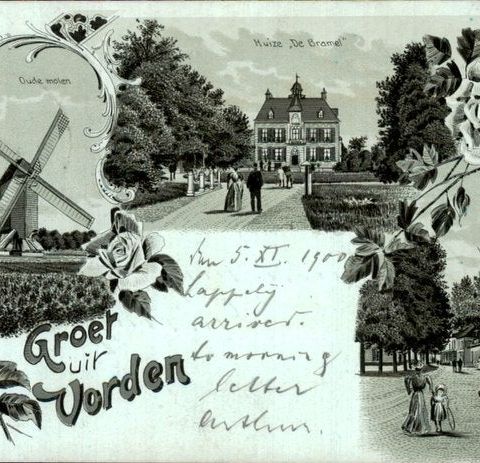 Oude molen
Huize „De Bramel"
Groet
uit
Vorden
den 5. XI. 1900
happily
arrived.
to morning
letter
Arthur.